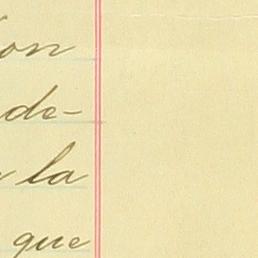 on
de-
la
que